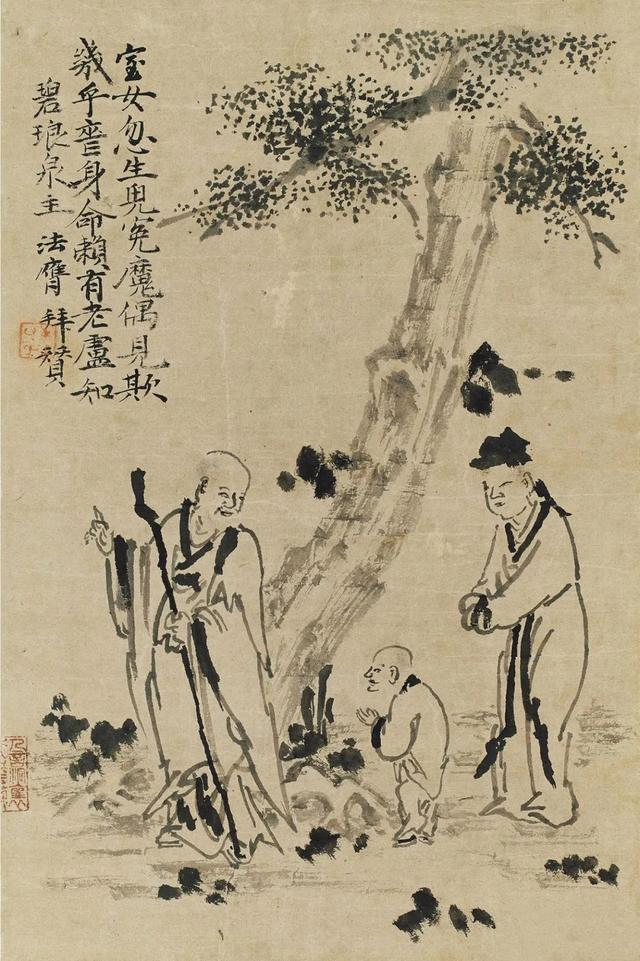 室女忽生兒冤魔偶見欺
幾乎喪身命賴有老盧知
碧琅泉主 法膺 拜贊